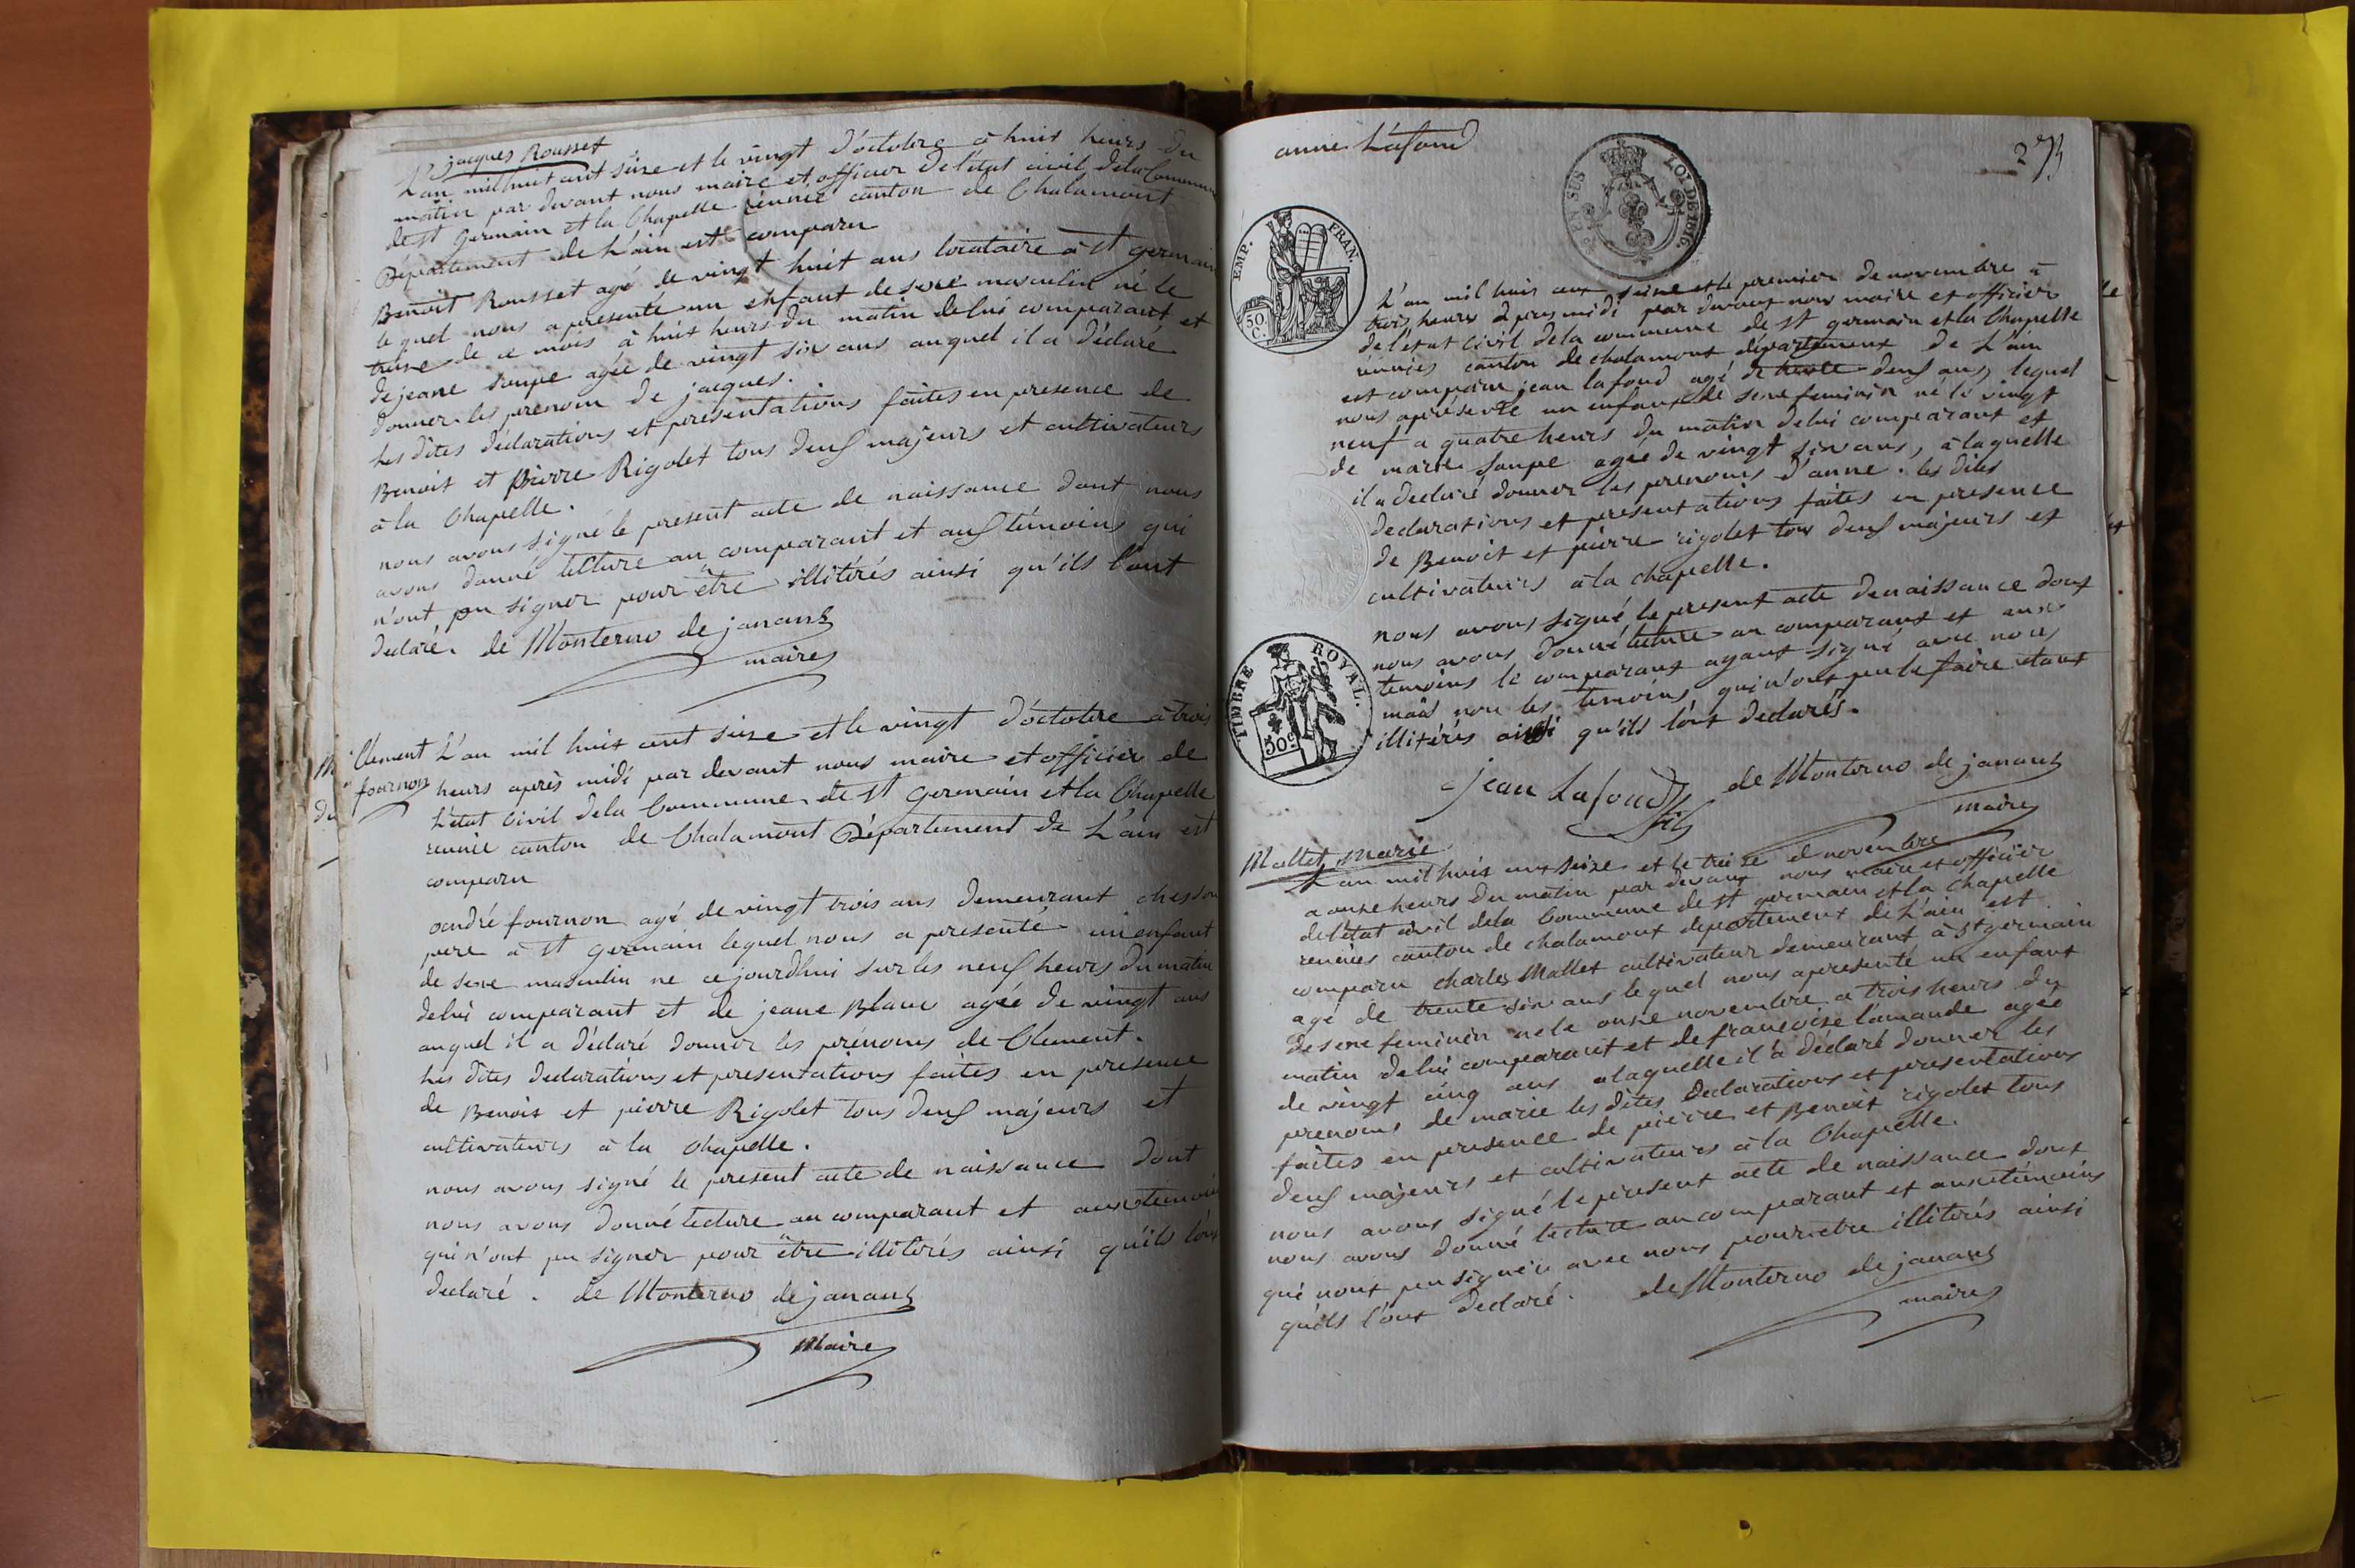 jacques Rousset
L'an mil huit cent seize et le vingt d'octobre à huit heures du
matin par devant nous maire et officier de l'état civil dela Commune
de st germain et la Chapelle réunie canton de Chalamont
Département de L'ain est comparu
Benoit Rousset agé de vingt huit ans locataire à st germain
lequel nous a presenté un enfant de sexe masculin né le
treize de ce mois à huit heurs du matin delui comparant et
de jeane soupe agée de vingt six ans auquel il a déclaré
donner les prenom de jacques.
les dites déclarations et présentations faites en presence de
Benoit et pierre Rigolet tous deuf majeurs et cultivateurs
à la Chapelle.
nous avons signé le present acte de naissance dont nous
avons donné lecture au comparant et auf témoins qui
n'ont pu signer pour être illitérés ainsi qu'ils l'ont
declaré. de Monterno de janans
maire
Clement
fournon
L'an mil huit cent seize et le vingt d'octobre à trois
heurs après midi par devant nous maire et officier de
L'état civil dela Commune de st germain et la Chapelle
reunie canton de Chalamont Département de L'ain est
comparu
andré fournon agé de vingt trois ans demeurant ches son
pere à st germain lequel nous a presenté un enfant
de sexe masculin ne ce jourdhui sur les neuf heurs du matin
delui comparant et de jeane Blanc agée de vingt ans
auquel il a déclaré donner les prénoms de Clement.
les dites declarations et presentations faites en presence
de Benoit et pierre Rigolet tous deuf majeurs et
cultivateurs à la Chapelle.
nous avons signé le present acte de naissance dont
nous avons donné lecture au comparant et aux temoins
qui n'ont pu signer pour être illitérés ainsi qu'ils l'ont
declaré. de Monterno de janans
Maire
anne Lafond
LOI DE 1816.
EMP. FRAN.
50
C.
L'an mil huit cent seize et le premier de novembre à
trois heures apres midi par devant nous maire et officier
de l'état civil dela commune de st germain et la Chapelle
réunies canton de chalamont département de L'ain
est comparu jean lafond agé de trente deuf ans, lequel
nous a présenté un enfant de sexe feminin né le vingt
neuf a quatre heurs du matin delui comparant et
de marie soupe agée de vingt six ans, à laquelle
il a declaré donner les prenoms d'anne. les dites
declarations et presentations faites en presence
de Benoit et pierre rigolet tous deuf majeurs et
cultivateurs à la chapelle.
nous avons signé le present acte de naissance dont
nous avons donné lecture au comparant et aux
temoins le comparant ayant signé avec nous
mais non les temoins, qui n'ont pu le faire étant
illitérés ainsi qu'ils l'ont declarés.
TIMBRE ROYAL.
50c
jean Lafond fils de Monterno de janans
maire
Mallet Marie
L'an mil huit cent seize et le treize de novembre
a onze heurs du matin par devant nous maire et officier
de l'état civil dela Commune de st germain et la chapelle
reunies canton de chalamont departement de L'ain est
comparu charles Mallet cultivateur demeurant à st germain
agé de trente six ans lequel nous a presenté un enfant
de sexe feminin né le onze novembre a trois heurs du
matin delui comparant et de françoise lamande agée
de vingt cinq ans a laquelle il a declaré donner les
prenoms de marie les dites declarations et presentations
faites en presence de pierre et Benoit rigolet tous
deuf majeurs et cultivateurs à la Chapelle.
nous avons signé le present acte de naissance dont
nous avons donné lecture au comparant et aux témoins
qui n'ont pu signer avec nous pour etre illitérés ainsi
qu'ils l'ont declaré. de Monterno de janans
maire